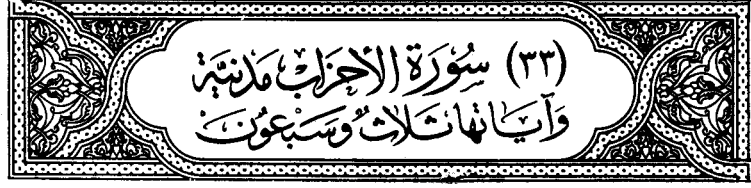 (٣٣) سُورَة الأحزاب مَدنيَّة
وَآيَاتها ثَلاثٌ وسَبعُونَ